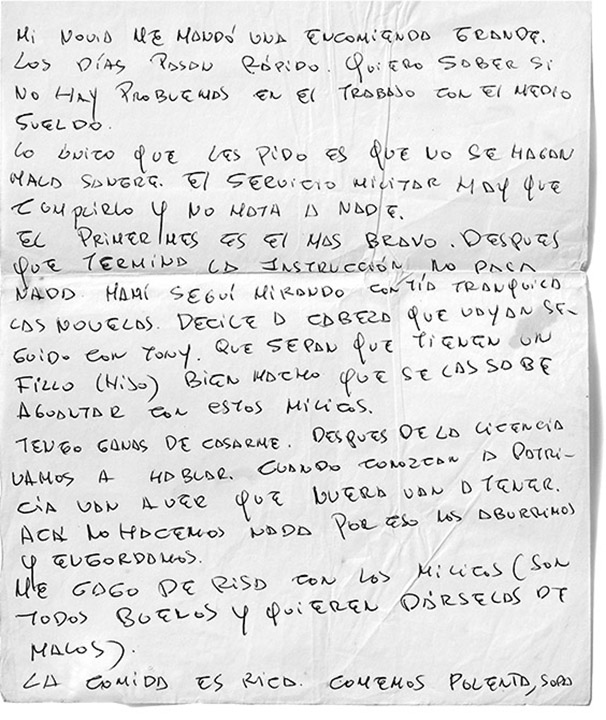 MI NOVIA ME MANDÓ UNA ENCOMIENDA GRANDE.
LOS DÍAS PASAN RÁPIDO. QUIERO SABER SI
NO HAY PROBLEMAS EN EL TRABAJO CON EL MEDIO
SUELDO.
LO ÚNICO QUE LES PIDO ES QUE NO SE HAGAN
MALA SANGRE. EL SERVICIO MILITAR HAY QUE
CUMPLIRLO Y NO MATA A NADIE.
EL PRIMER MES ES EL MAS BRAVO. DESPUES
QUE TERMINA LA INSTRUCCIÓN NO PASA
NADA. MAMÍ SEGUÍ MIRANDO CON TÍA TRANQUILA
LAS NOVELAS. DECILE A CABEZA QUE VAYAN SE-
GUIDO CON TONY. QUE SEPAN QUE TIENEN UN
FILLO (HIJO) BIEN MACHO QUE SE LAS SABE
AGUANTAR CON ESTOS MILICOS.
TENGO GANAS DE CASARME. DESPUES DE LA LICENCIA
VAMOS A HABLAR. CUANDO CONOZCAN A PATRI-
CIA VAN A VER QUE NUERA VAN A TENER.
ACÁ NO HACEMOS NADA POR ESO NOS ABURRIMOS
Y ENGORDAMOS.
ME CAGO DE RISA CON LOS MILICOS (SON
TODOS BUENOS Y QUIEREN DÁRSELAS DE
MALOS).
LA COMIDA ES RICA. COMEMOS POLENTA, SOPA